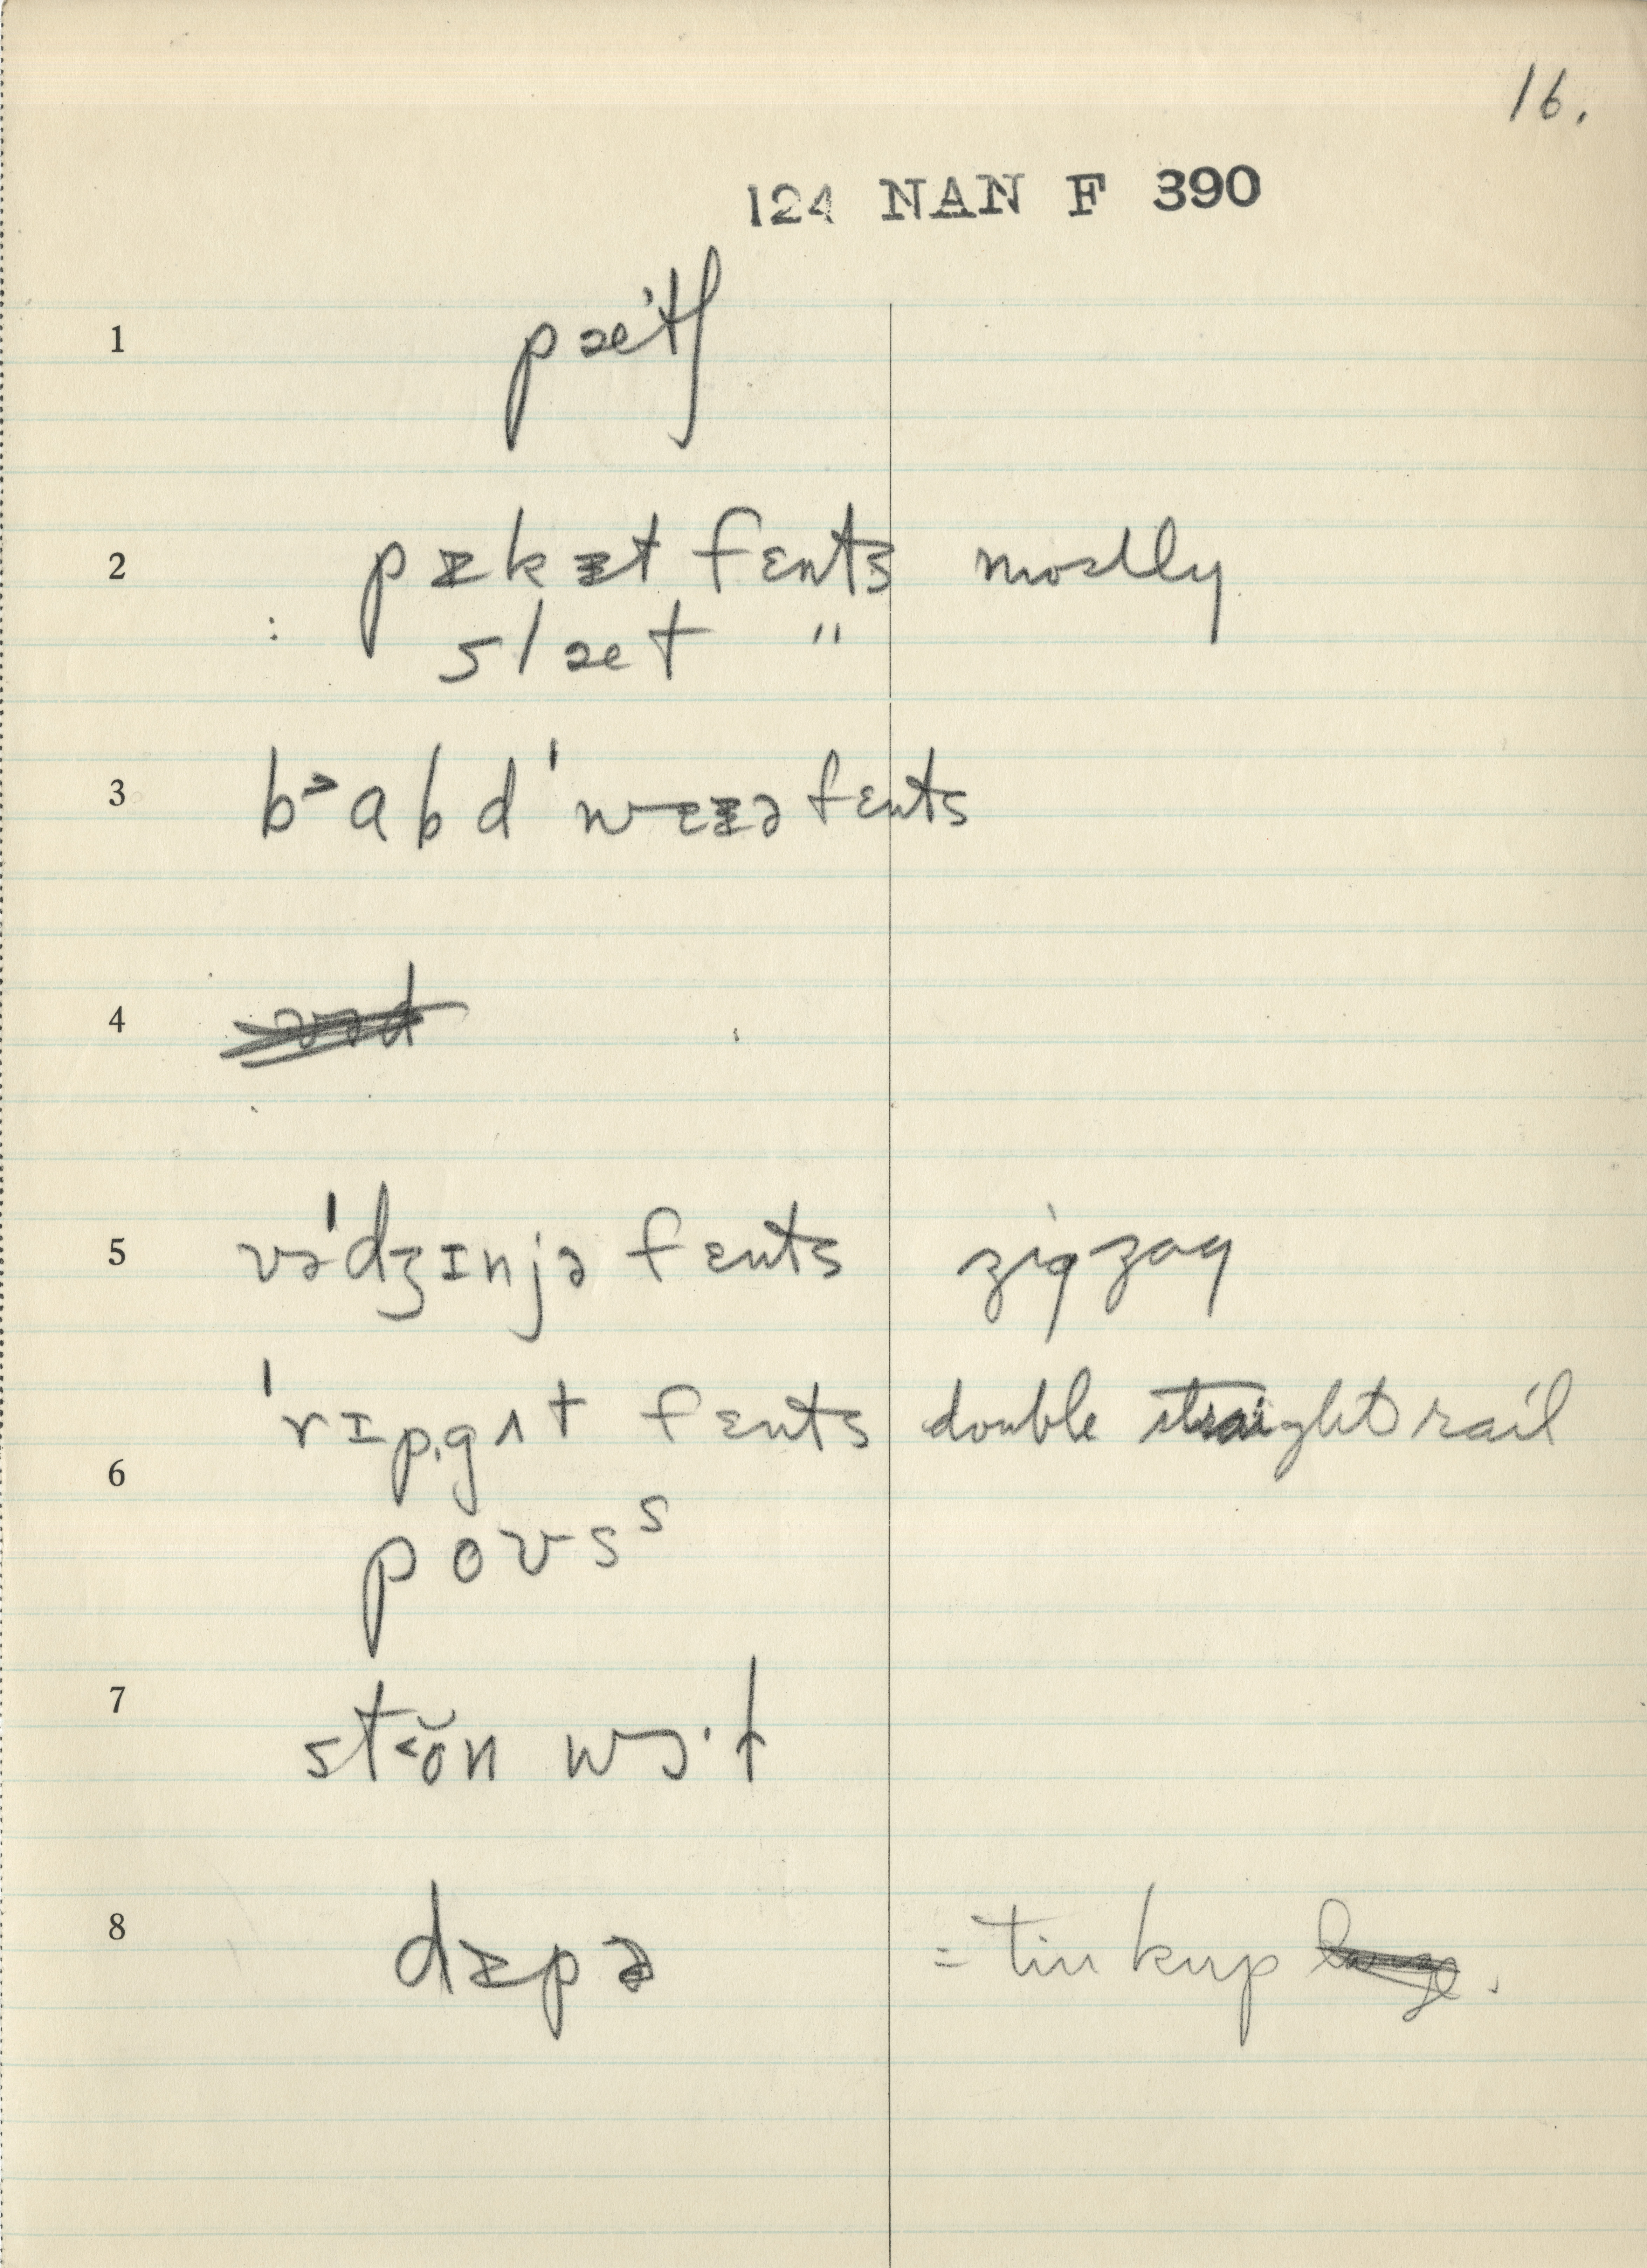 16.
124 NAN F 390
1 pæˈtʃ
2 pɪkɪt fɛnts mostly
: slæt "
3 b˃abd ˈwɪɪə fɛnts
4
5 vəˈdʒɪnjə fɛnts zigzag
ˈrɪp.gʌt fɛnts double straight rail
6
poʊsˢ
7 st˂ŏn wɔ·ɫ
8 dɪpə = tin kup